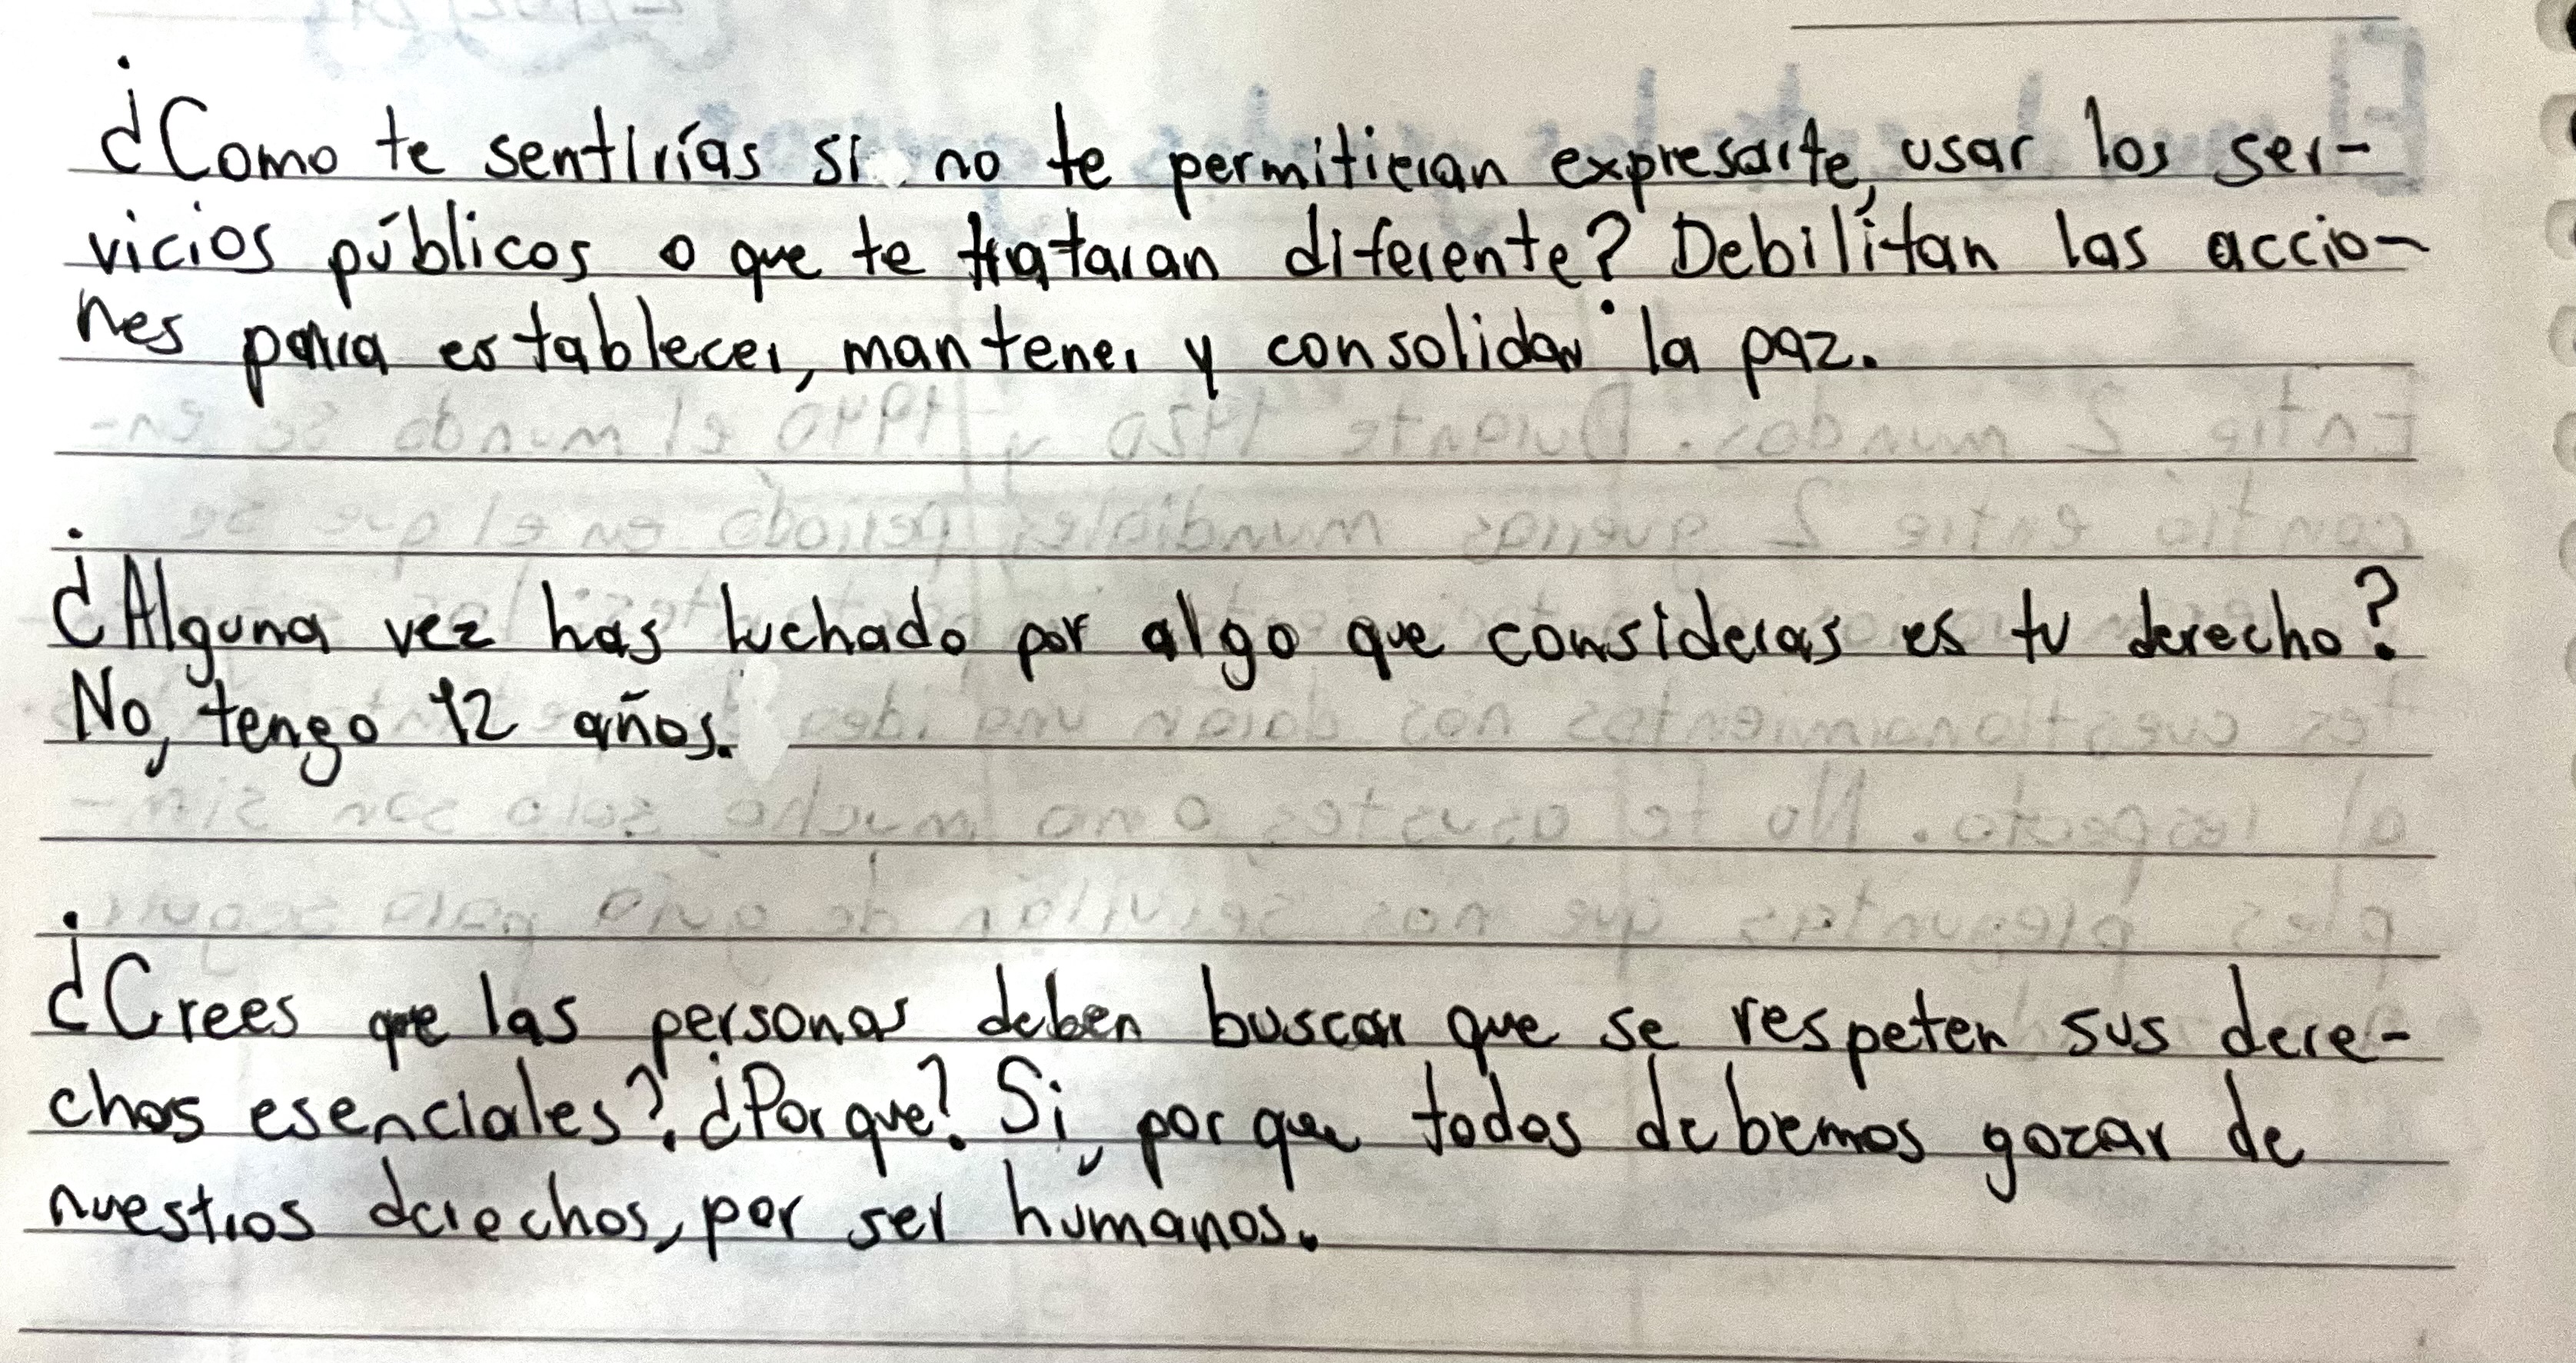 ¿Como te sentirías si no te permitieran expresarte, usar los ser-
vicios públicos o que te trataran diferente? Debilitan las accio-
nes para establecer, mantener y consolidar la paz.
¿Alguna vez has luchado por algo que consideras es tu derecho?
No, tengo 12 años.
¿Crees que las personas deben buscar que se respeten sus dere-
chos esenciales? ¿Por que? Si, por que todos debemos gozar de
nuestros derechos, por ser humanos.